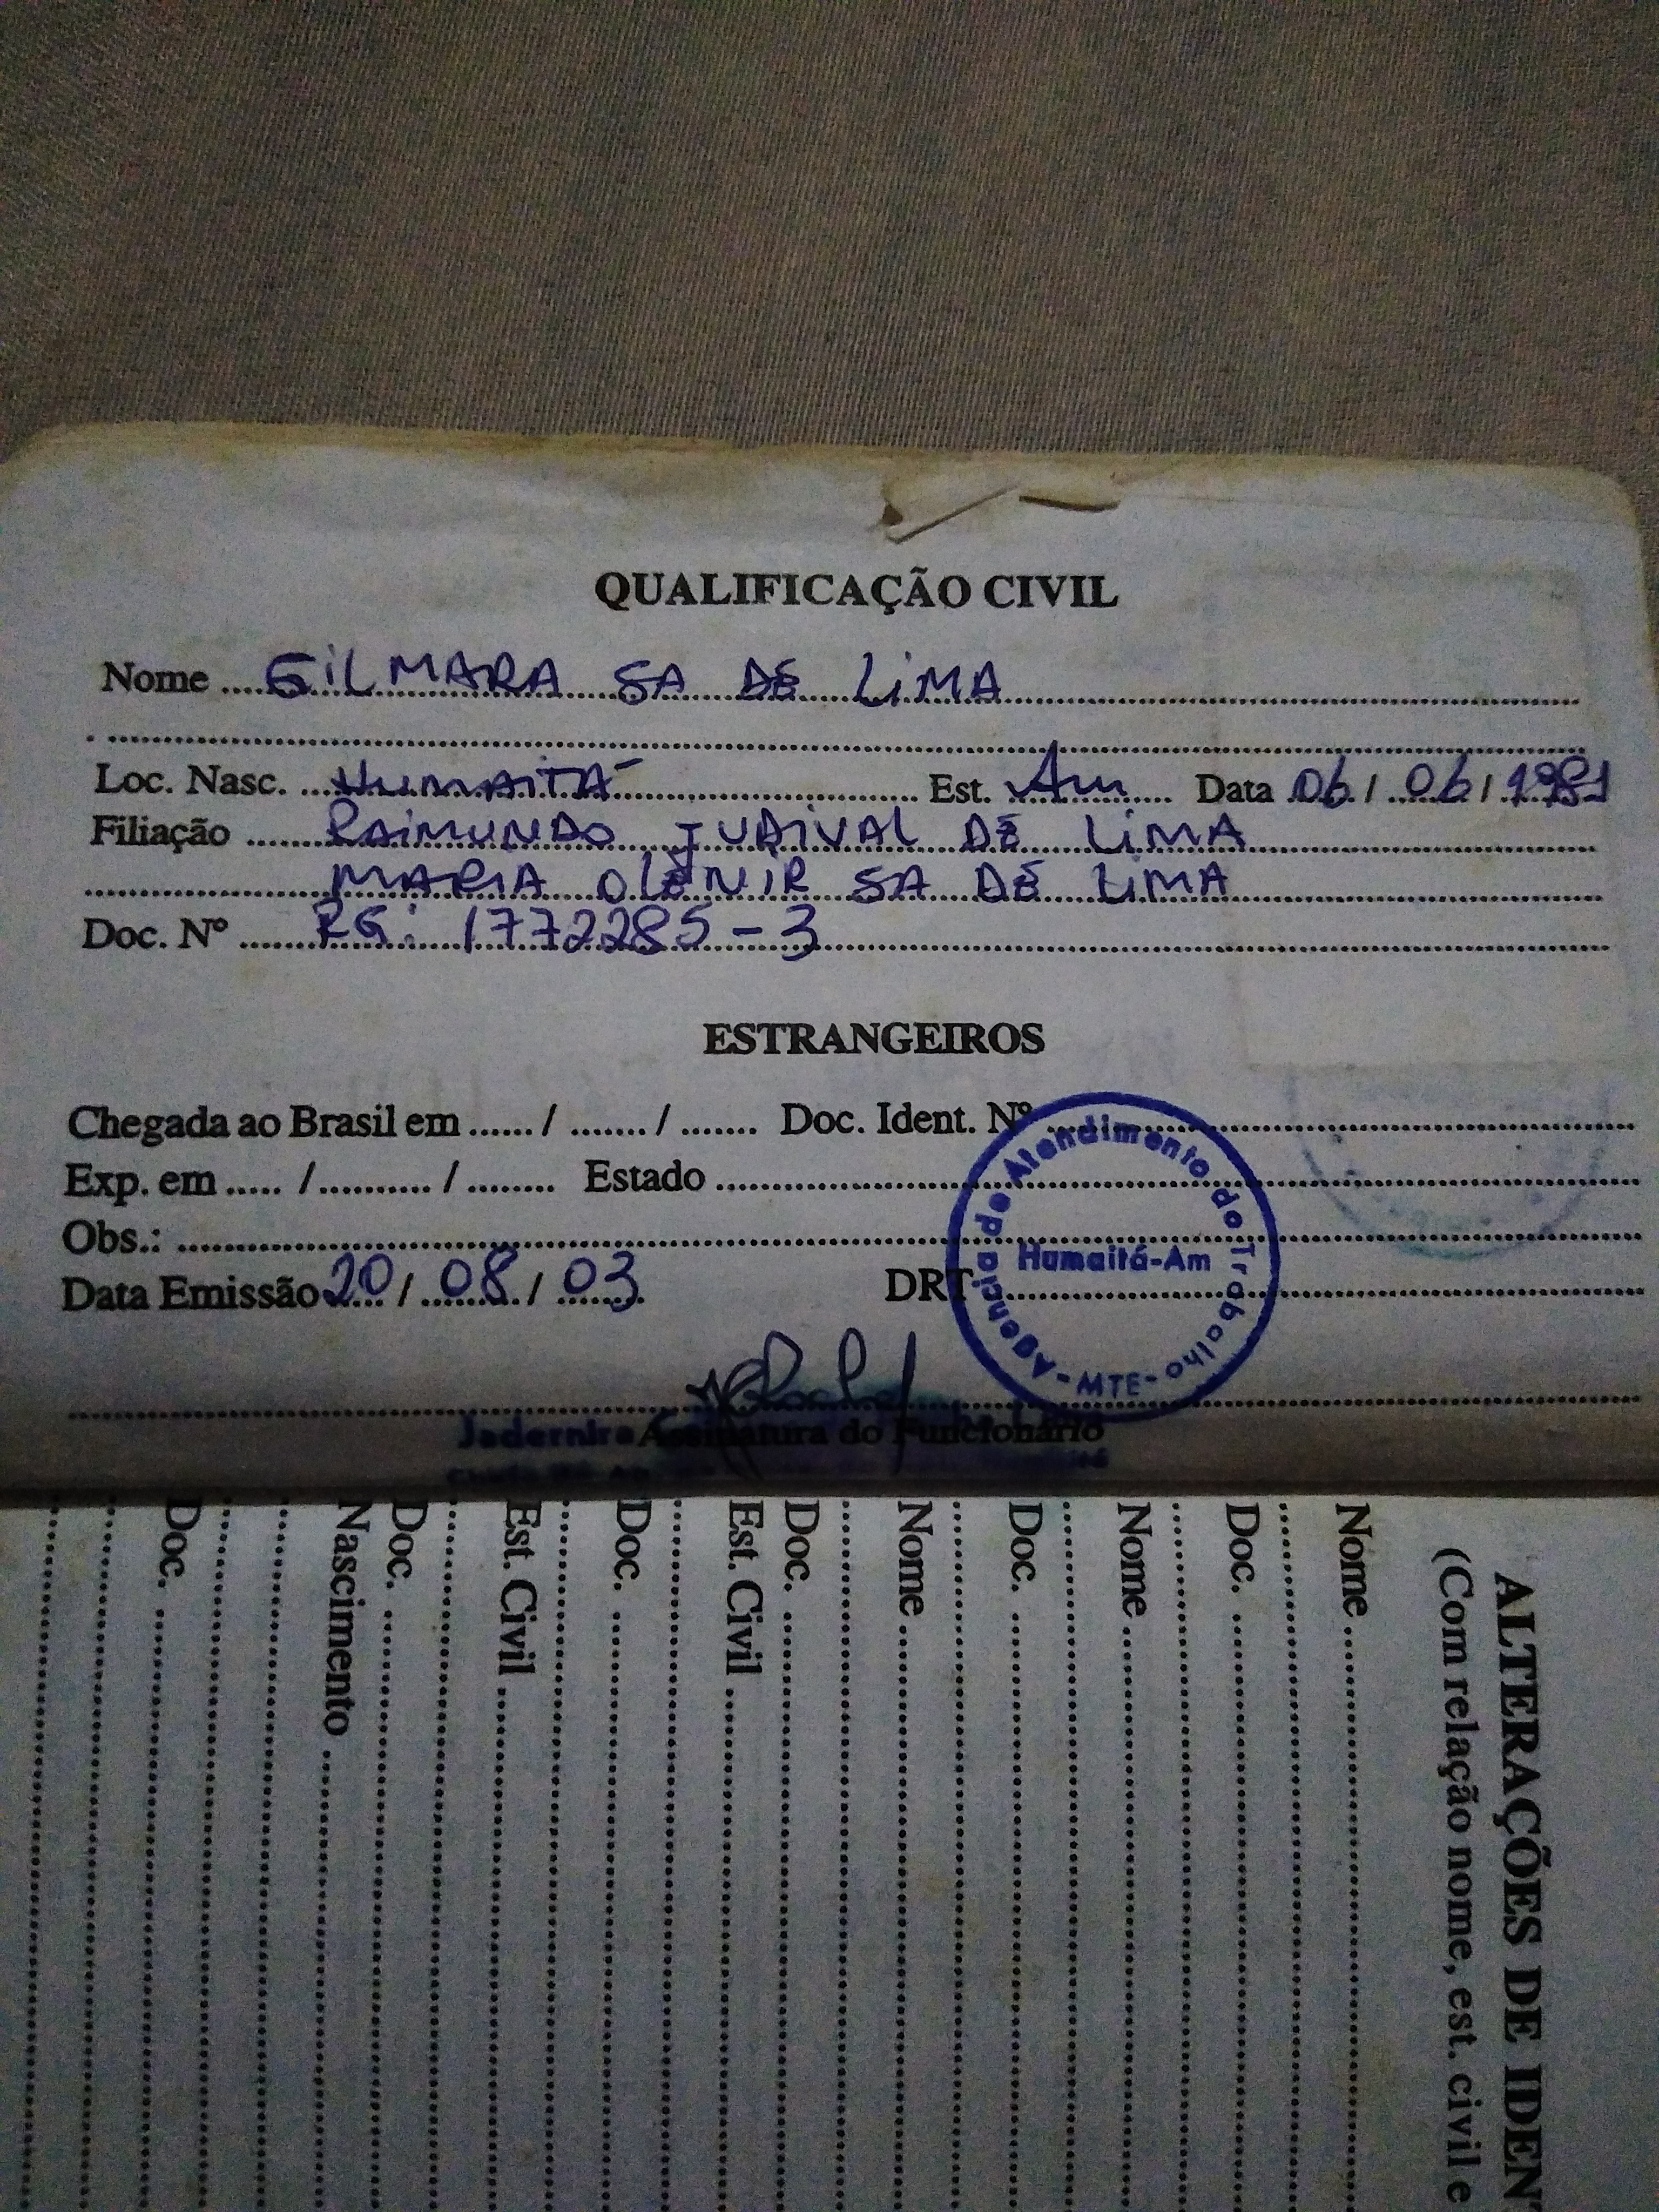 QUALIFICAÇÃO CIVIL
Nome ....GILMARA SA DE LIMA
Loc. Nasc. ...HUMAITÁ Est. Am Data 06 / 06 / 1981
Filiação ...... RAIMUNDO JUDIVAL DE LIMA
MARIA OLENIR SA DE LIMA
Doc. Nº ...... RG: 1772285-3
ESTRANGEIROS
Chegada ao Brasil em ...... / ....... / ....... Doc. Ident. Nº
Exp. em ..... /.......... / ........ Estado
Obs.:
Data Emissão 20 / 08 / 03 DRT
Agencia de Atendimento do Trabalho
Humaitá-Am
- MTE -
Jadernira
Assinatura do Funcionário
ALTERAÇÕES DE IDEN
(Com relação nome, est. civil e
Nome
Doc.
Nome
Doc.
Nome
Doc.
Est. Civil
Doc.
Est. Civil
Doc.
Nascimento
Doc.